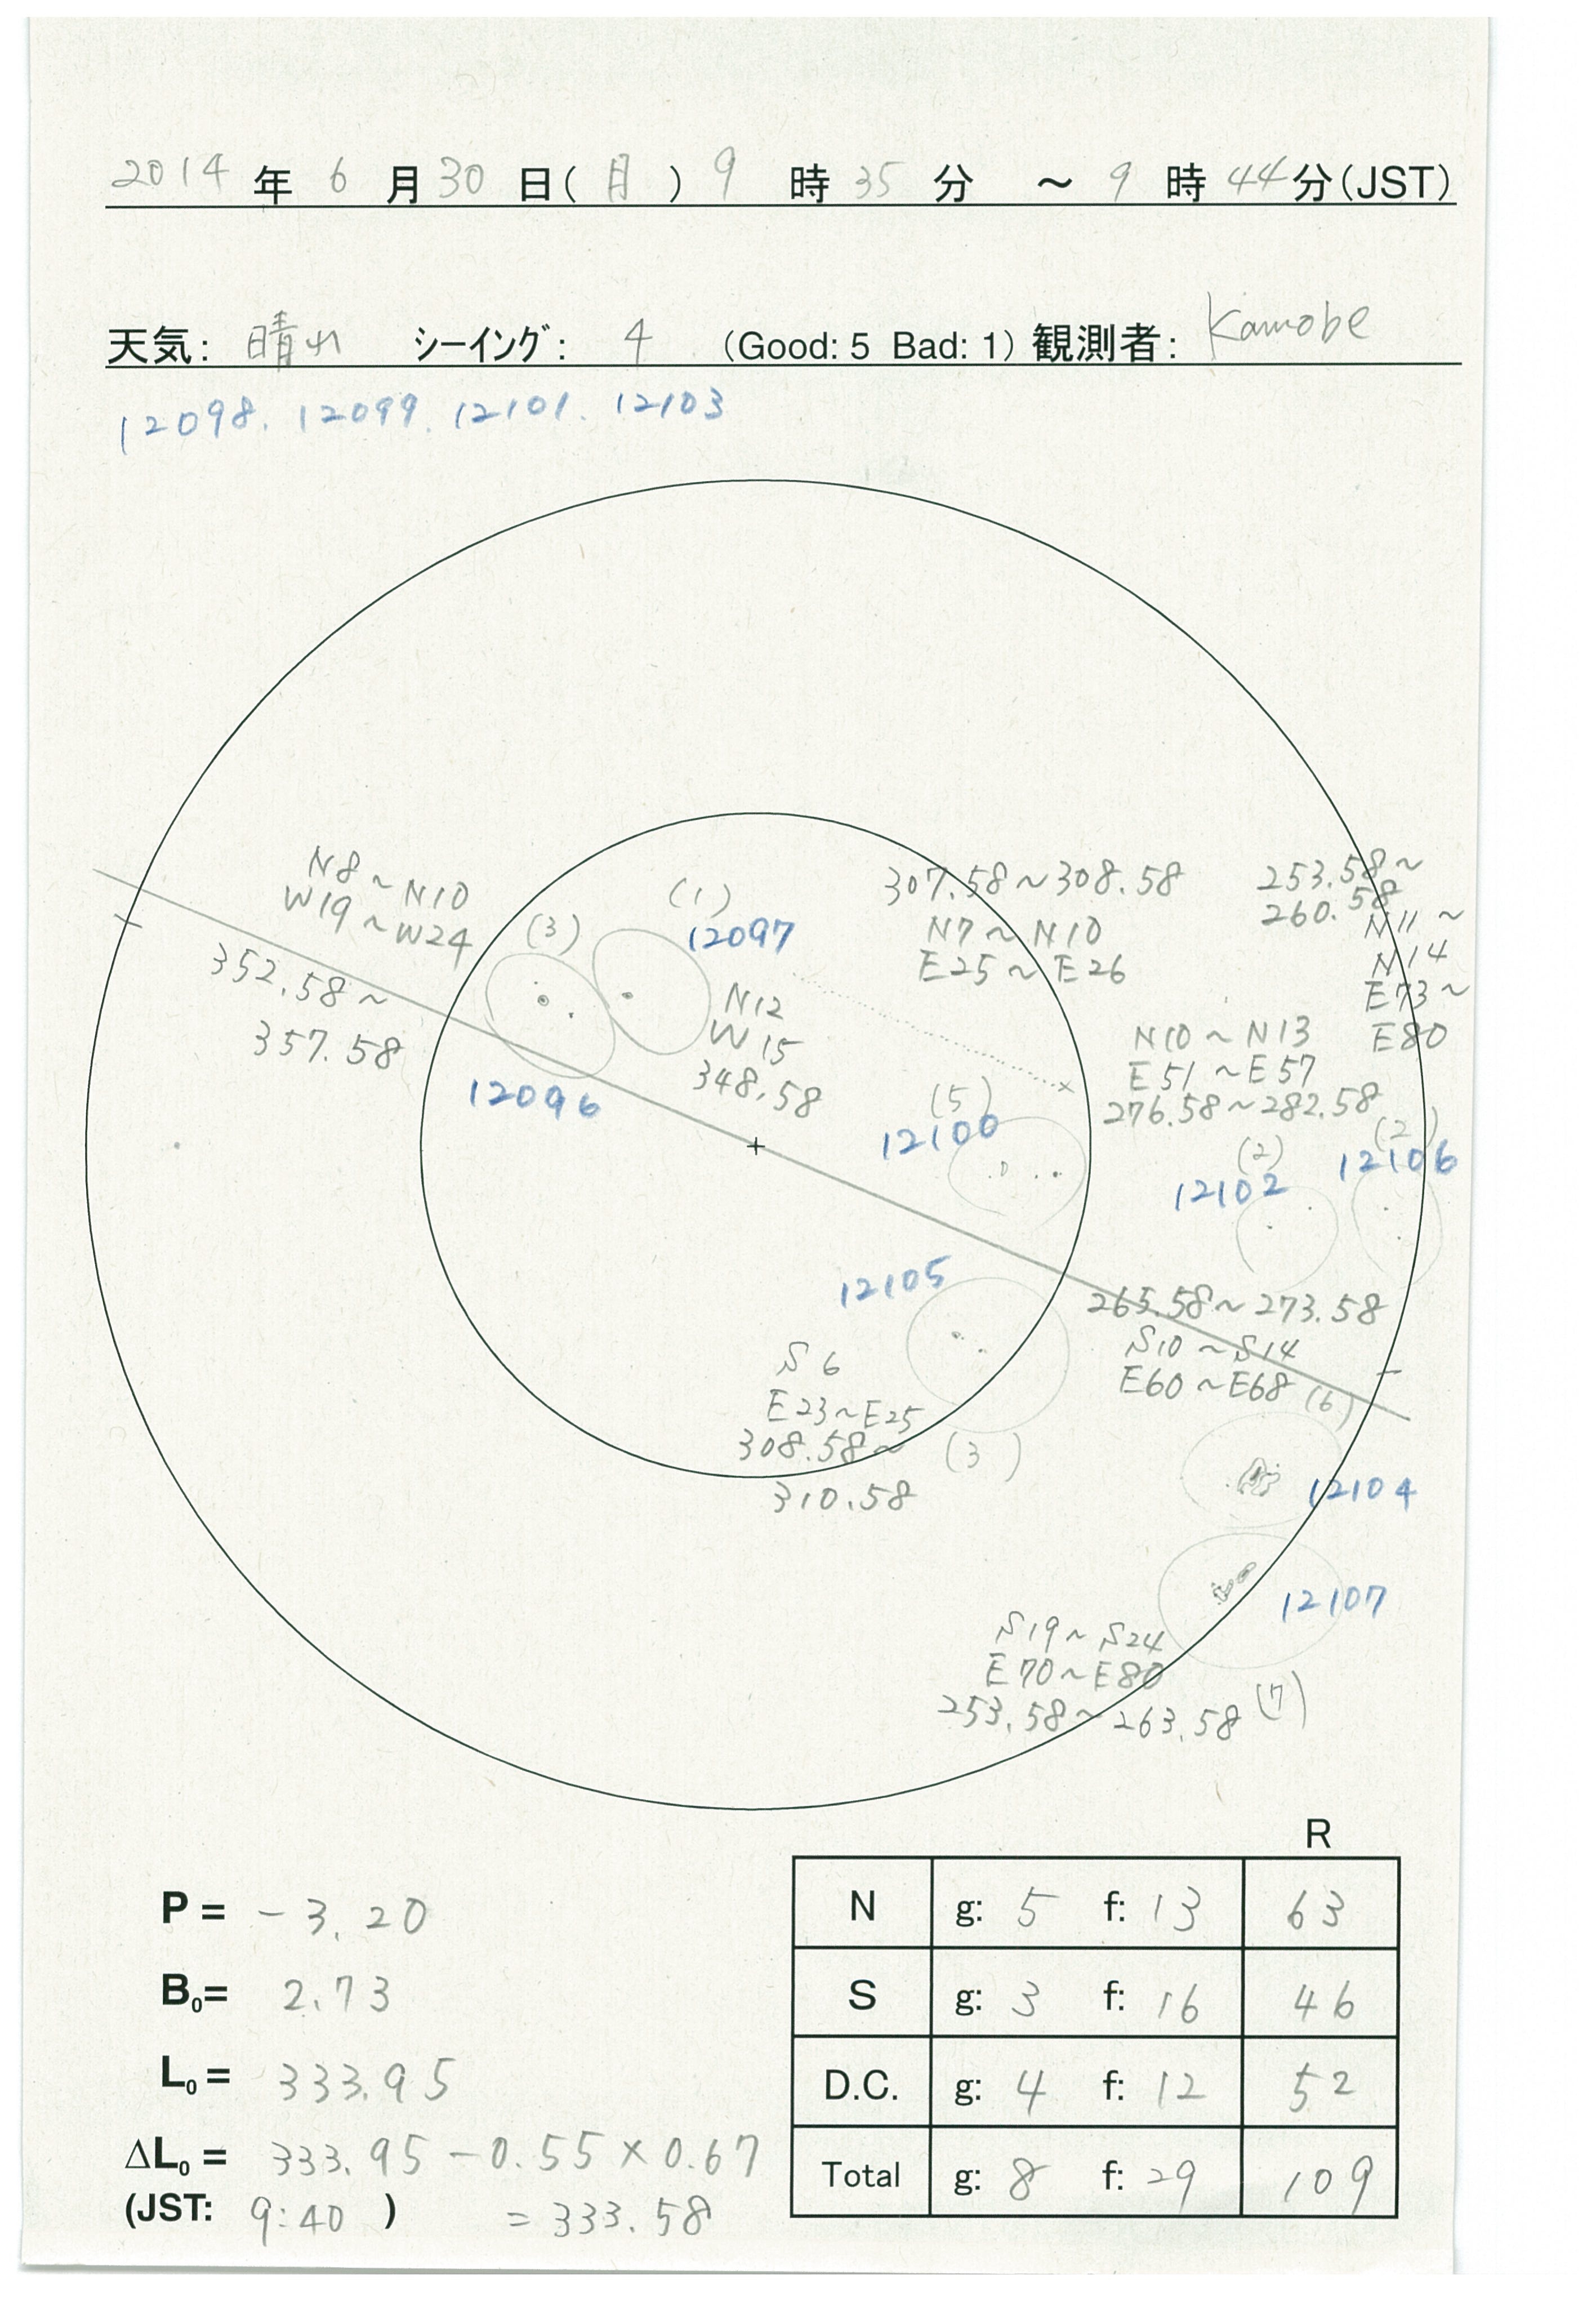 2014 年 6 月 30 日(月) 9 時 35 分 ～ 9 時 44 分(JST)
天気: 晴れ シーイング: 4 (Good: 5 Bad: 1) 観測者: Kamobe
12098. 12099. 12101. 12103
N8~N10
W19~W24
352.58~
357.58
(3)
12096
(1)
12097
N12
W15
348.58
307.58~308.58
N7~N10
E25~E26
(5)
12100
253.58~
260.58
N11~
N14
E73~
E80
(2)
12106
N10~N13
E51~E57
276.58~282.58
(2)
12102
12105
S6
E23~E25
308.58~
310.58
(3)
265.58~273.58
S10~S14
E60~E68 (6)
12104
12107
S19~S24
E70~E80
253.58~263.58 (7)
P = -3.20
B0= 2.73
L0 = 333.95
ΔL0 = 333.95-0.55×0.67
(JST: 9:40) =333.58
R
N g: 5 f: 13 63
S g: 3 f: 16 46
D.C. g: 4 f: 12 52
Total g: 8 f: 29 109